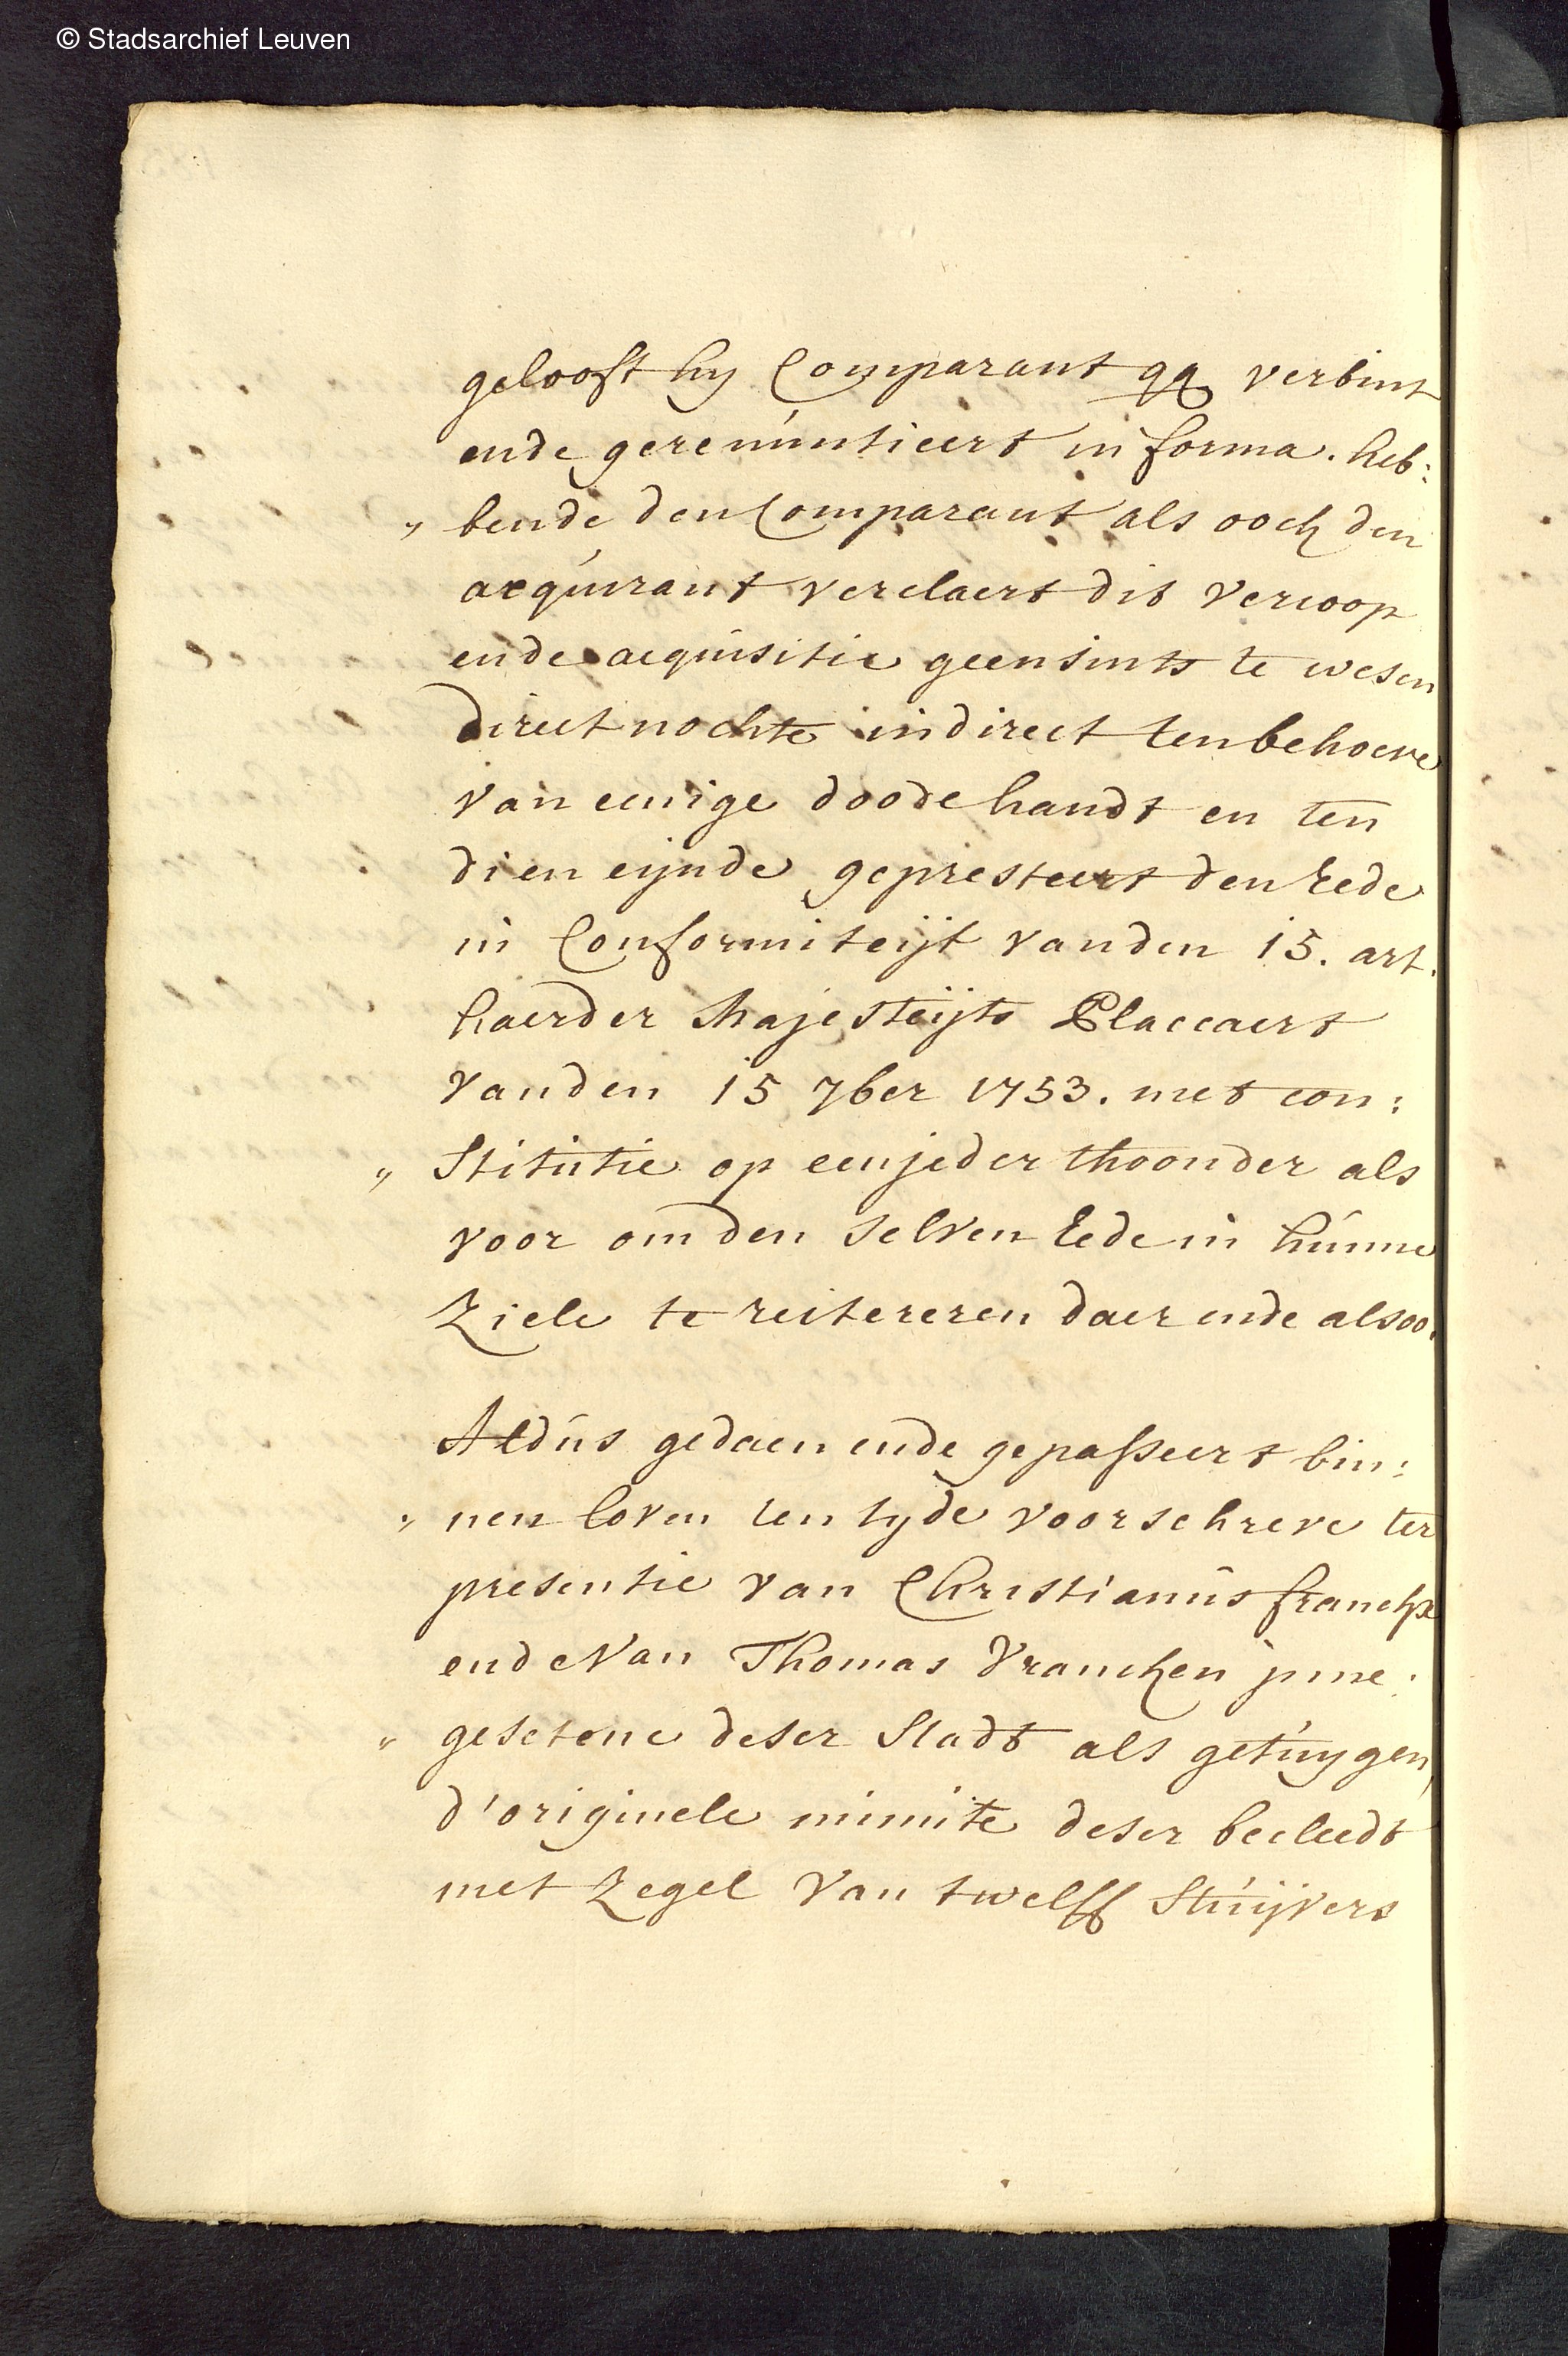 © Stadsarchief Leuven
gelooft hy Comparant qq verbint
ende gerenuntieert in forma. heb:
„ bende den Comparant als oock den
acquirant verclaert dit vercoop
ende acquisitie geensints te wesen
direct nochte indirect ten behoeve
van eenige doode handt en ten
dien eijnde gepresteert den Eede
in Conformiteijt vanden 15. art.
haerder Majesteijts Placcaert
vanden 15 7ber 1753. met con:
„ stitutie op een jeder thoonder als
voor om den selven Eede in hunne
Ziele te reitereren daer ende alsoo.
Aldus gedaen ende gepasseert bin:
„ nen Loven ten tyde voorschreve ter
presentie van Christianus franckx
ende Van Thomas Vrancken jnne:
„ gesetene deser Stadt als getuygen,
d'originele minute deser becleedt
met Zegel Van twelff Stuijvers